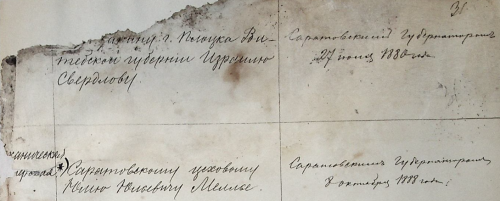 31
г. Плоцка Ви-
тебской губернии Израилю
Свердлову
Саратовский Губернаторомъ
27 июня 1880 года
Саратовскому цеховому
Юлию Юльевичу Меллье.
Саратовскимъ Губернаторомъ
8 октября 1888 года